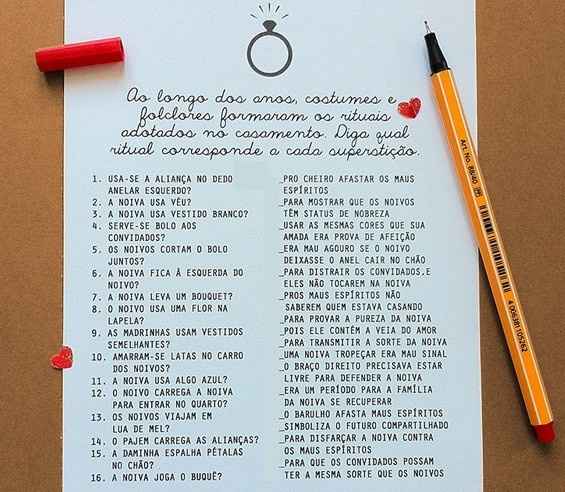 Ao longo dos anos, costumes e
folclores formaram os rituais
adotados no casamento. Diga qual
ritual corresponde a cada superstição.
1. USA-SE A ALIANÇA NO DEDO
ANELAR ESQUERDO?
2. A NOIVA USA VÉU?
3. A NOIVA USA VESTIDO BRANCO?
4. SERVE-SE BOLO AOS
CONVIDADOS?
5. OS NOIVOS CORTAM O BOLO
JUNTOS?
6. A NOIVA FICA À ESQUERDA DO
NOIVO?
7. A NOIVA LEVA UM BOUQUET?
8. O NOIVO USA UMA FLOR NA
LAPELA?
9. AS MADRINHAS USAM VESTIDOS
SEMELHANTES?
10. AMARRAM-SE LATAS NO CARRO
DOS NOIVOS?
11. A NOIVA USA ALGO AZUL?
12. O NOIVO CARREGA A NOIVA
PARA ENTRAR NO QUARTO?
13. OS NOIVOS VIAJAM EM
LUA DE MEL?
14. O PAJEM CARREGA AS ALIANÇAS?
15. A DAMINHA ESPALHA PÉTALAS
NO CHÃO?
16. A NOIVA JOGA O BUQUÊ?
_PRO CHEIRO AFASTAR OS MAUS
ESPÍRITOS
_PARA MOSTRAR QUE OS NOIVOS
TÊM STATUS DE NOBREZA
_USAR AS MESMAS CORES QUE SUA
AMADA ERA PROVA DE AFEIÇÃO
_ERA MAU AGOURO SE O NOIVO
DEIXASSE O ANEL CAIR NO CHÃO
_PARA DISTRAIR OS CONVIDADOS,E
ELES NÃO TOCAREM NA NOIVA
_PROS MAUS ESPÍRITOS NÃO
SABEREM QUEM ESTAVA CASANDO
_PARA PROVAR A PUREZA DA NOIVA
_POIS ELE CONTÉM A VEIA DO AMOR
_PARA TRANSMITIR A SORTE DA NOIVA
_UMA NOIVA TROPEÇAR ERA MAU SINAL
_O BRAÇO DIREITO PRECISAVA ESTAR
LIVRE PARA DEFENDER A NOIVA
_ERA UM PERÍODO PARA A FAMÍLIA
DA NOIVA SE RECUPERAR
_O BARULHO AFASTA MAUS ESPÍRITOS
_SIMBOLIZA O FUTURO COMPARTILHADO
_PARA DISFARÇAR A NOIVA CONTRA
OS MAUS ESPÍRITOS
_PARA QUE OS CONVIDADOS POSSAM
TER A MESMA SORTE QUE OS NOIVOS
Art. No. 88/40
4 006381105262